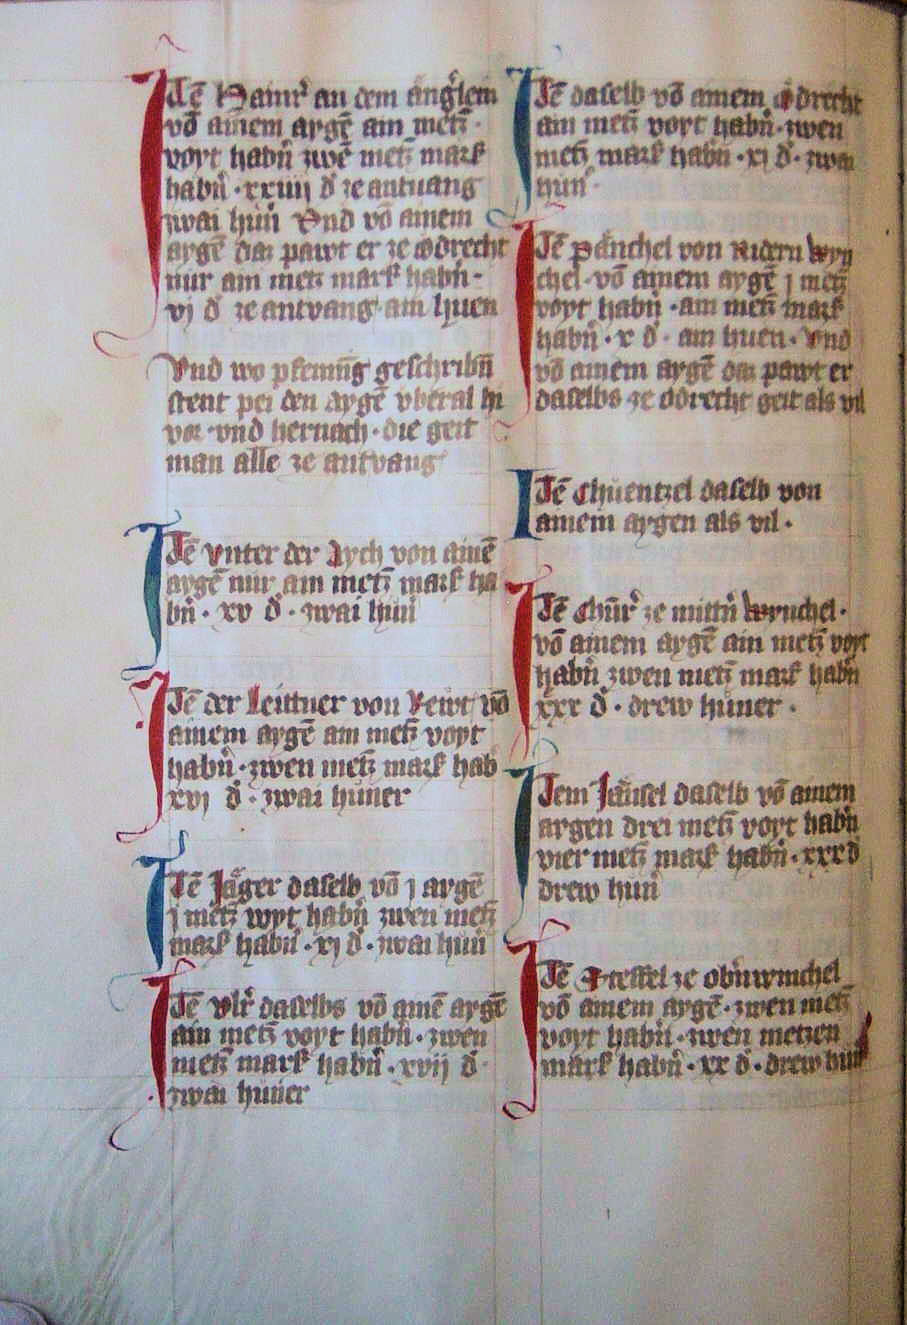 Itē Hainr̄ an dem ängerlein
vō ainem aygē ain metz̄ ·
voyt habn̄ zwē metz̄ mark
habn̄ · xxiiij d̄ ze antuang
zwai hūn̄ Vnd vō ainem
aygē daz pawt er ze odrecht
nur ain metz̄ mark habn̄ ·
vj d̄ ze antvang · ain huen
Vnd wo pfennīg geschribn̄
stent pei den aygē vberal hi
vor · vnd hernach · die geit
man alle ze antvang
Itē vnter der Aych von ainē
aygē nur ain metz̄ mark ha
bn̄ · xv d̄ · zwai hūn̄
Itē der Leittner von Rewt vō
ainem aygē ain metz̄ voyt
habn̄ · zwen metz̄ mark hab
xvj d̄ · zwai hūner
Itē Jäger daselb vō j aygē
j metz̄ voyt habn̄ zwen metz̄
mark habn̄ · xj d̄ · zwai hūn̄
Itē vlr̄ daselbs vō ainē aygē
ain metz̄ voyt habn̄ · zwen
metz̄ mark habn̄ · xvij d̄ ·
zwai hūner
Itē daselb vō ainem odrecht
ain metz̄ voyt habn̄ · zwen
metz̄ mark habn̄ · xj d̄ · zwai
hūn̄ ·
Itē Pänchel von nidern wyn
chel · vō ainem aygē j metz̄
voyt habn̄ · ain metz̄ mark
habn̄ · x d̄ · ain huen · Vnd
vō ainem aygē daz pawt er
daselbs ze odrecht geit als vil
Itē Chüentzel daselb von
ainem aygen als vil ·
Itē Chūnr̄ ze mittn̄ wynchel ·
vō ainem aygē ain metz̄ voyt
habn̄ zwen metz̄ mark habn̄
xxx d̄ · drew hūner ·
Item Jäusel daselb vō ainem
aygen drei metz̄ voyt habn̄
vier metz̄ mark habn̄ · xxx d̄
drew hūn̄
Itē ze obn̄winchel
vō ainem aygē · zwen metz̄
voyt habn̄ · zwen metzen
mark habn̄ · xx d̄ · drew hūn̄